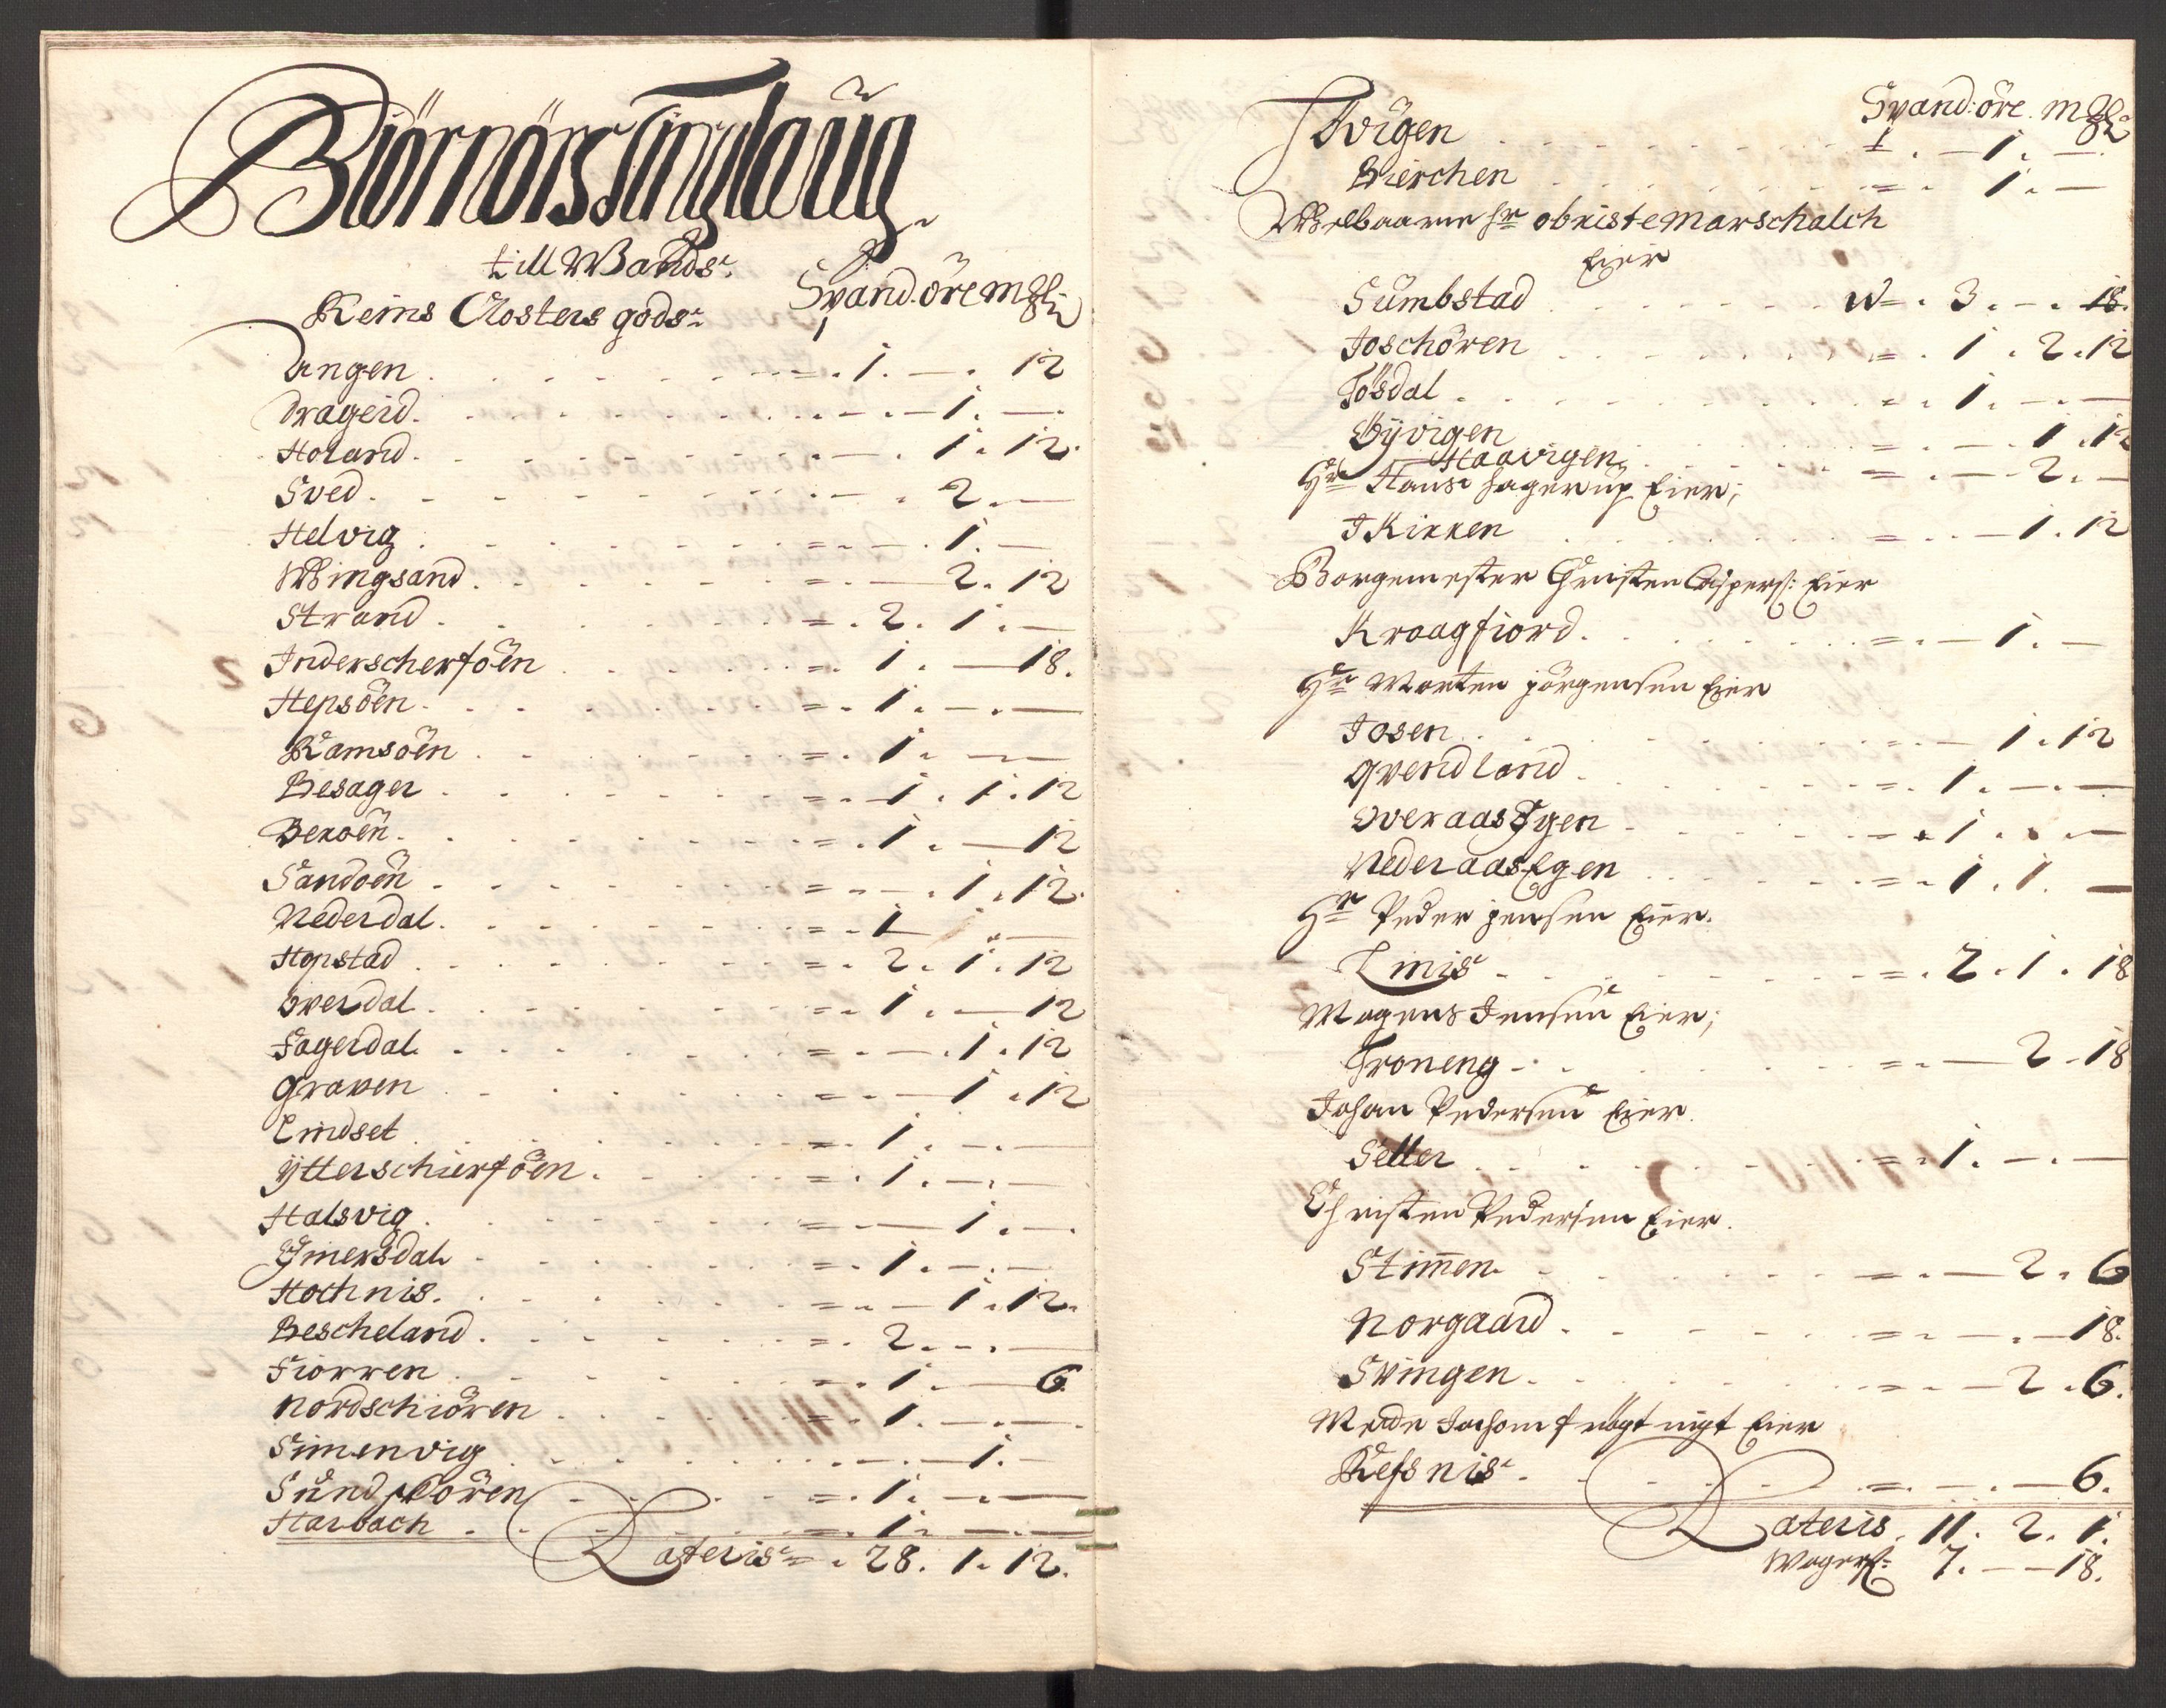 Biörnörs Tinglaug
till Wands
Reins Closters gods
Spand. öre m&#x2114;
Tangen . 1. — . 12
Drageid. — 1. —
Holand. — . 1 . 12.
Sved. — . 2. —
Helvig . — . 1. —
Wingsand. — 2. 12
Strand. 2. 1. —
Inderscherföen . 1. — 18.
Hepsöen. 1. — . —
Ramsöen . 1. — —
Besager . 1 . 1 . 12
Beröen. 1 . — 12
Sandöen . — . 1 . 12.
Nederdal. 1 —
Hopstad . 2. 1. 12
Overdal. 1 . — 12
Fagerdal. — . 1 . 12
Graven . — 1 . 12
Lindset . 1 . — . —
Ytterschierföen. 1. — . —
Halsvig. — 1. — .
Einersdal. 1. — . —
Hochnis. — 1 . 12.
Bescheland. 2. — . —
Fiorren . 1 . — 6.
Nordschiören . 1. — . —
Simenvig . — . — 1. —
Sundschören 1. — . —
Harbach . 1. — . —
Lateris . 28. 1. 12.
Spand: öre. m
Tvigen . 1. —
Bierchen . 1. —
Welbaarne hr obriste Marschalch
Eier
Sumbstad . 3. — . 18.
Joschören . 1 . 2 . 12
Tösdal . 1 . — . —
Öyvigen . — . 1 . 12
Haavigen . — . 2. —
Hr Hans Hagerup Eier;
I Kirken . — . 1. 12
Borgemester Christen Caspers: Eier
Kraagfiord. — 1. —
Hr Morten Jörgensen Eier
Josen. — 1 . 12
Qvendland. 1. — . —
Overaas Egen . 1 . . —
Nederaas Egen . 1 . 1. —
Hr Peder Jensen Eier.
Linis . 2 . 1 . 18
Mogens Jensen Eier;
Troneng . — 2 . 18
Johan Pedersen Eier.
Setter . 1. — . —
Christen Pedersen Eier.
Stimen . — 2 . 6
Norgaard . — . — 18.
Svingen. — 2 . 6.
Refsnis . — . — 6.
Lateris. 11. 2. 1.
7. — — 18.